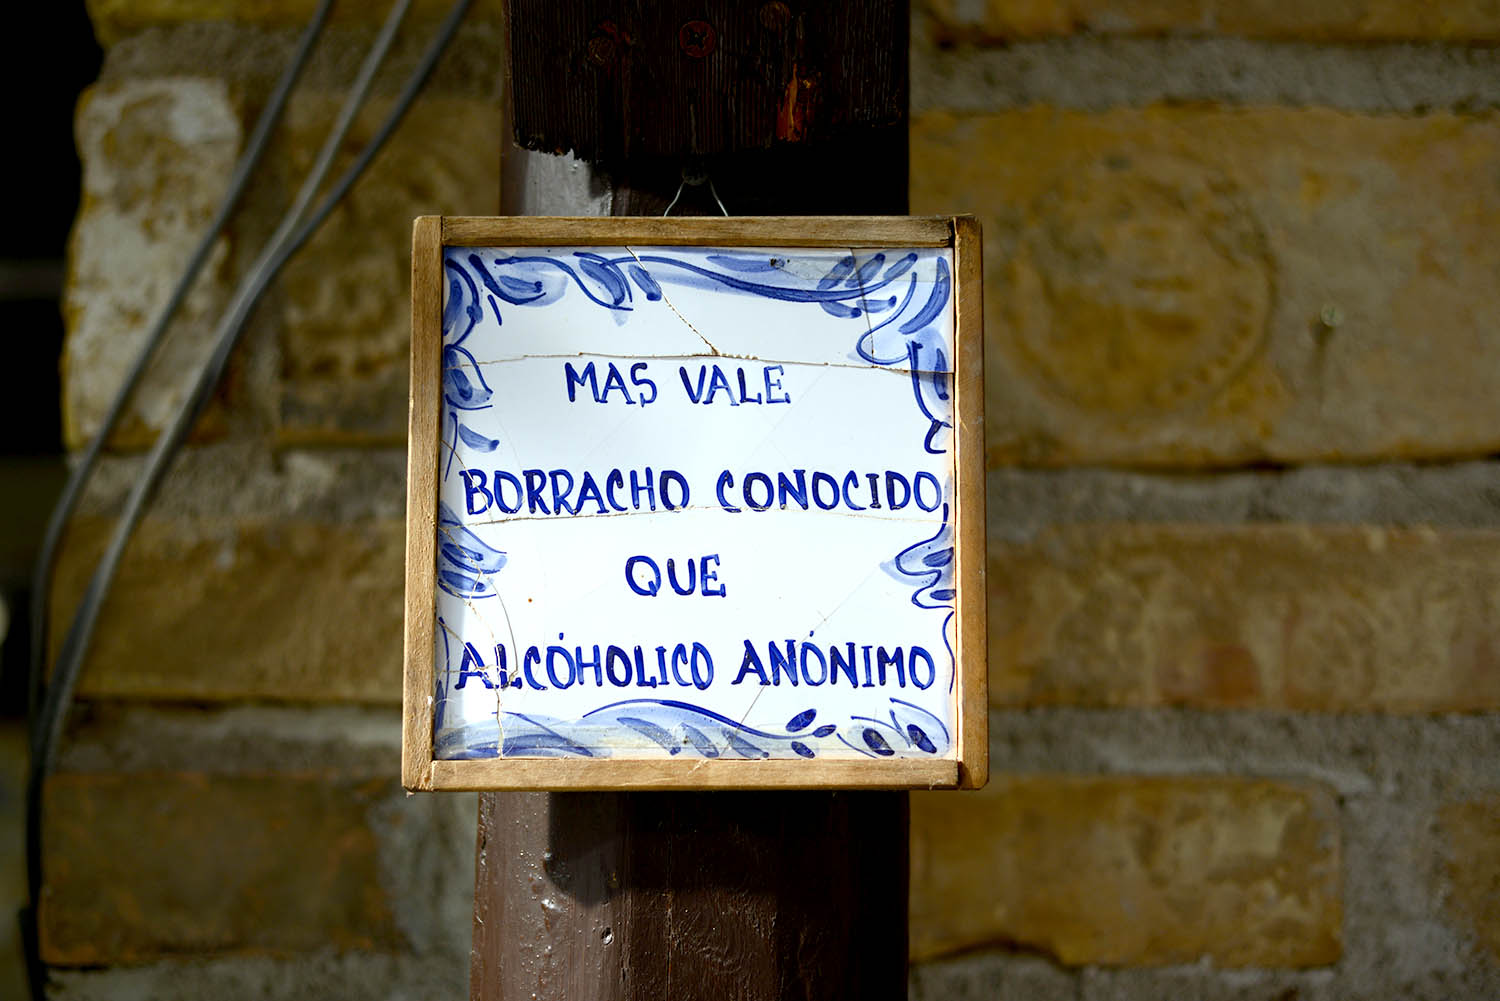 MAS VALE
BORRACHO CONOCIDO,
QUE
ALCÓHOLICO ANÓNIMO